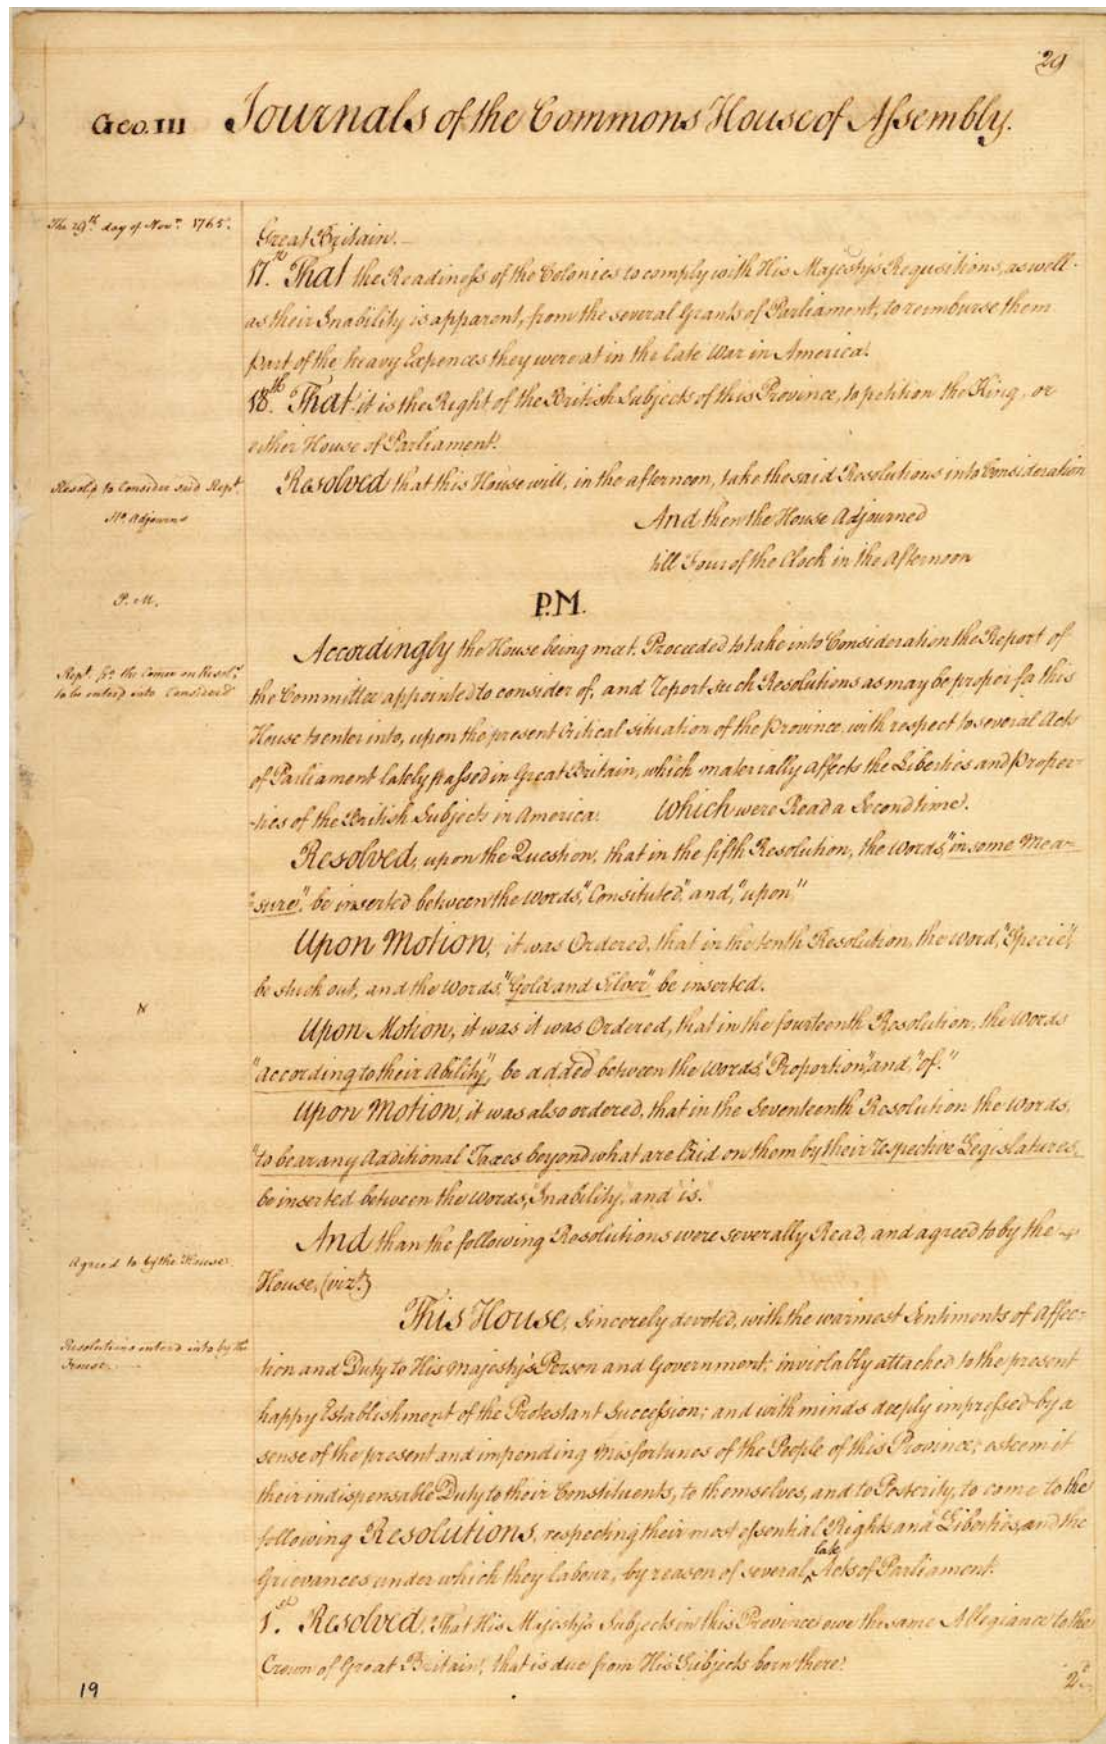 29
Geo. III Journals of the Commons House of Assembly.
The 29th. day of Novr. 1765.
Great Britain.
17.th That the Readiness of the Colonies to comply with His Majesty's Requsitions, as well
as their Inability is apparent, from the several Grants of Parliament, to reimburse them
part of the heavy Expences they were at in the late War in America.
18.th That it is the Right of the British Subjects of this Province, to petition the King, or
either House of Parliament.
Resolv'd to Consider said Rept.
Resolved that this House will, in the afternoon, take the said Resolutions into Consideration
Ho. Adjourns
And then the House Adjourned
till Four of the Clock in the Afternoon
P.M.
P.M.
Accordingly the House being meet. Proceeded to take into Consideration the Report of
Rept. fro the Comee on Resolns.
to be enterd into Considerd
the Committee appointed to consider of, and report such Resolutions as may be proper for this
House to enter into, upon the present Critical situation of the Province, with respect to several Acts
of Parliament lately passed in Great Britain, which materially affects the Liberties and Proper-
-ties of the British Subjects in America. Which were Read a Second time.
Resolved, upon the Question, that in the fifth Resolution, the words, "in some Mea-
"sure", be inserted between the words, "Consituted," and, "upon"
Upon Motion, it was Ordered, that in the tenth Resolution, the word, "Specie",
be stuck out, and the words, "Gold and Silver" be inserted.
Upon Motion, it was it was Ordered, that in the fourteenth Resolution, the words
"according to their Ability", be added between the words, "Proportion", and, "of."
Upon Motion, it was also ordered, that in the Seventeenth Resolution the words,
"to bear any Additional Taxes beyond what are laid on them by their respective Legislatures
be inserted between the words, "Inability," and "is."
And than the following Resolutions were severally Read, and agreed to by the
Agreed to by the House.
House, (vizt.)
This House, Sincerely devoted, with the warmest Sentiments of Affec-
Resolutions enterd into by the
House.
tion and Duty to His Majesty's Person and Government; inviolably attached to the present
happy Establishment of the Protestant Succession; and with minds deeply impressed by a
sense of the present and impending Misfortunes of the People of this Province; esteem it
their indispensable Duty to their Constituents, to themselves, and to Posterity, to come to the
following Resolutions, respecting their most essential Rights and Liberties, and the
Grievances under which they labour, by reason of several late Acts of Parliament.
1.st Resolved, That His Majesty's Subjects in this Province owe the same Allegiance to the
Crown of Great Britain, that is due from His Subjects born there.
2d.
19